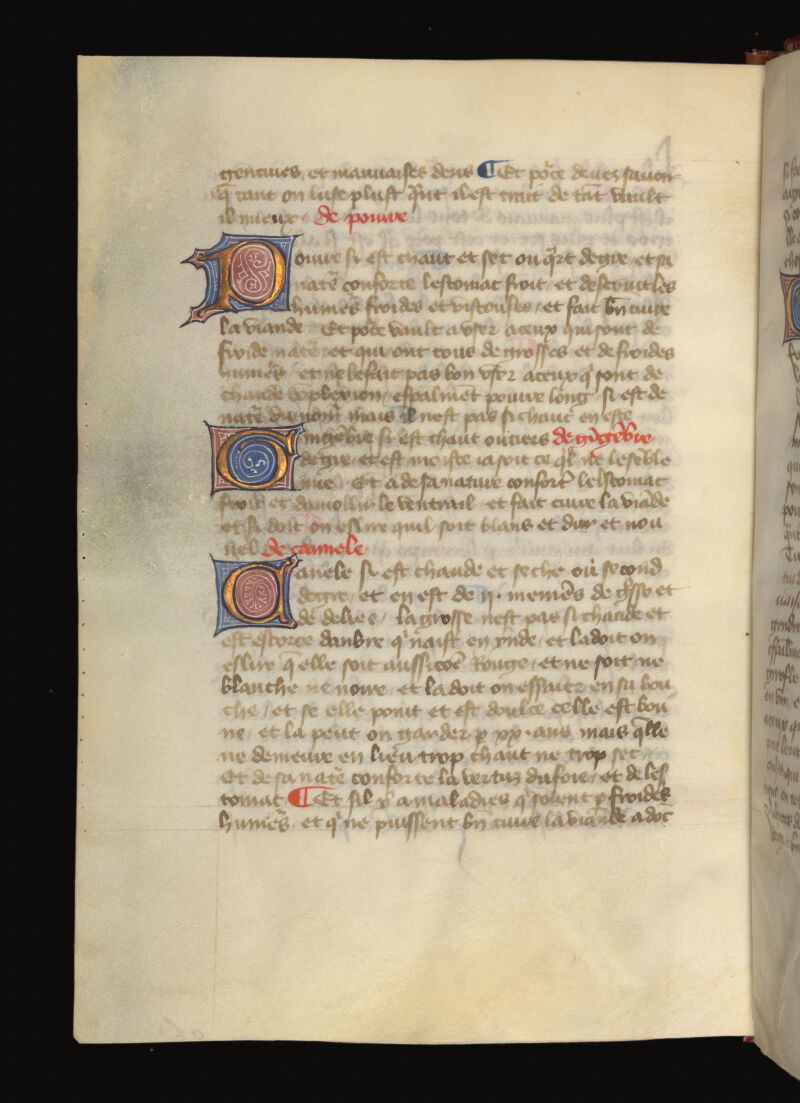 genciues et mauuaises dens ¶ Et po͛ce deuez sauoir
q̄ tant on luse plust q͛nt il est trait de tāt vault
il mieux · de poiure
Poiure si est chaut et sec ou q͛rt degre et sa
natē conforte lestomac froit / et destruit les
humēs froides et viscouses / et fait bn̄ cuire
la viande / Et po͛ce vault a vser a ceux qui sont de
froide natē et qui ont tous de grosses et de froides
humēs / et ne le fait pas bon vser a ceux qͥ sont de
chaude 9plexion / espalmēt poiure long si est de
natē du noir mais il nest pas si chaut en este
Gingēbre si est chaut ou tiers de gīgēbre
degre / et est moiste ia soit ce q͛l ne le semble
mie / Et a de sa nature confort͛ lestomac
froit et damollir le ventrail et fait cuire la viāde
et si doit on eslire quil soit blans et dur et nou
uel de cannele
Canele si est chaude et seche ou second
degre / et en est de ij · memēs de g͛sse et
de deliee / la grosse nest pas si chaude et
est escorce danbre qͥ naist en ynde / et la doit on
eslire q̄ elle soit aussi cōe Rouge / et ne soit ne
blanche ne noire / et la doit on essaier en sa bou
che / et se elle point et est doulce celle est bon
ne / et la peut on garder p xxx · ans mais q̄lle
ne demeure en lieu trop chaut ne trop sec /
Et de sa natē conforte la vertus du foie / et de les
tomac ¶ Et sil y a maladies qͥ soient p froides
humēs / et qͥ ne puissent bn̄ cuire la viande adoc